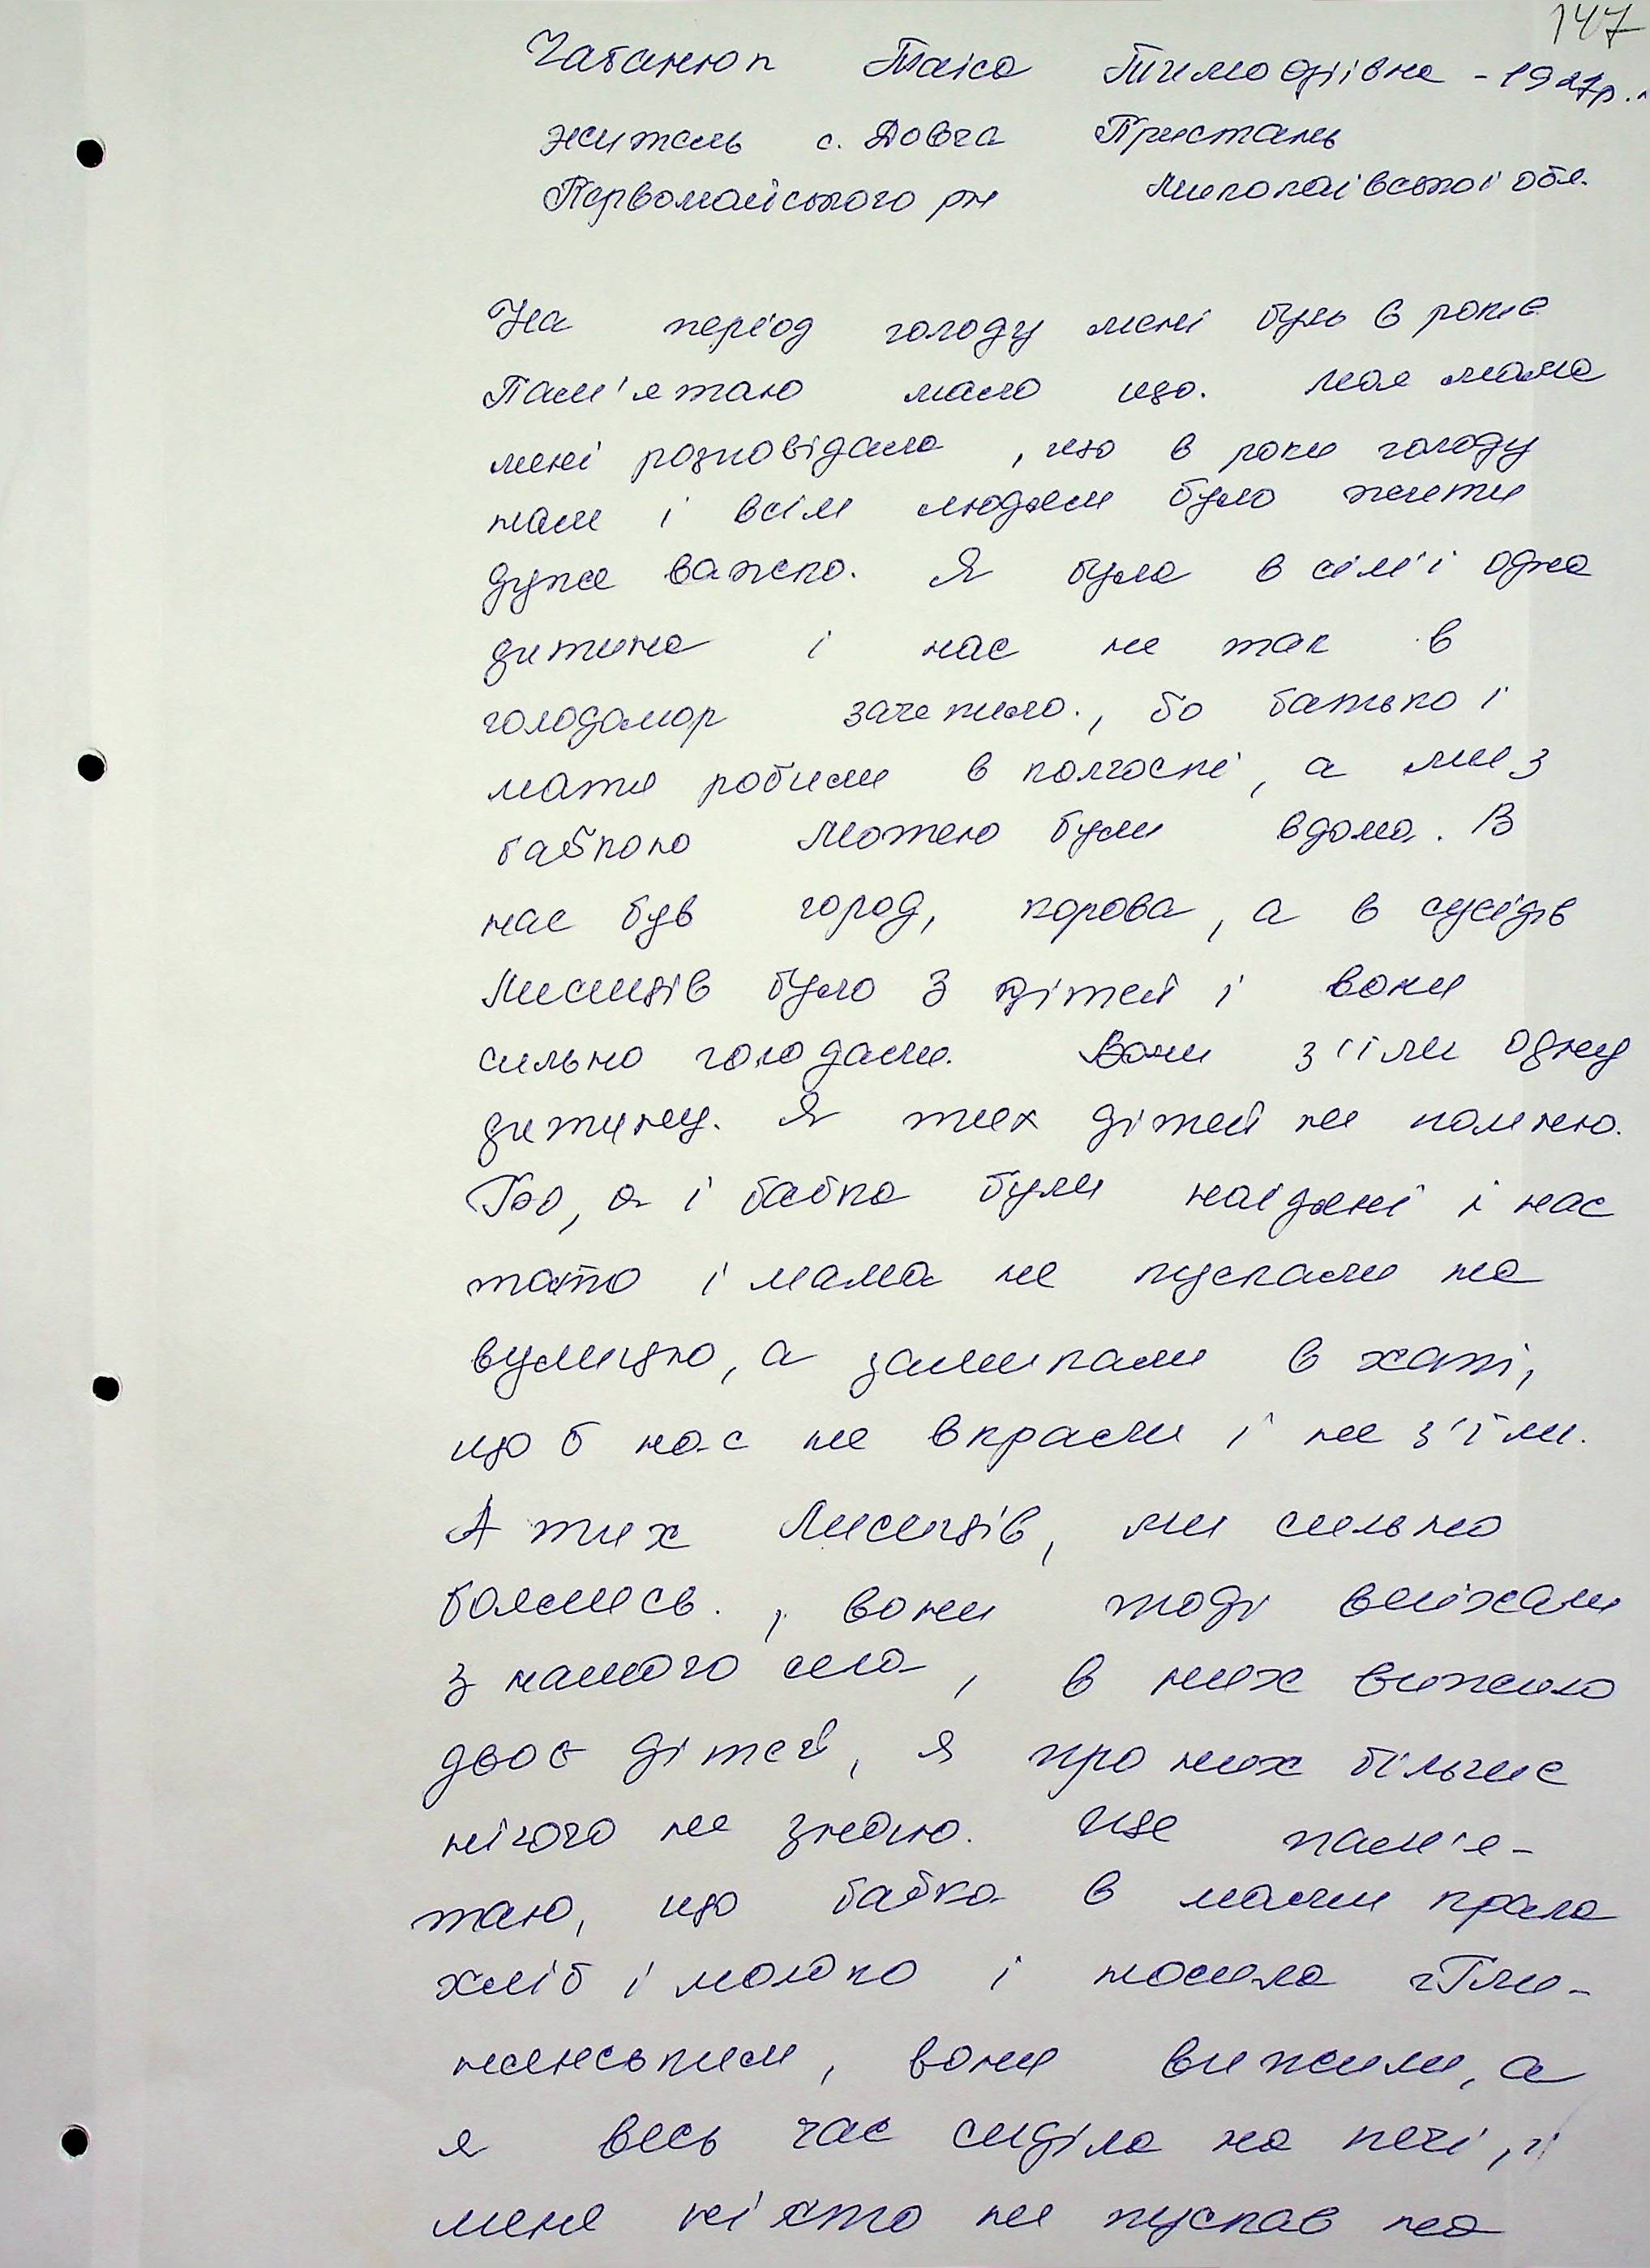 147
Чабанюк Таіса Тимофіївна - 1927р..
житель с. Довга Пристань
Первомайського рн Миколаївської обл.
На період голоду мені було 6 років
Пам'ятаю мало що. Моя мама
мені розповідала, що в роки голоду
нам і всім людям було жити
дуже важко. Я була в сім'ї одна
дитина і нас не так в
голодомор зачепило., бо батько і
мати робили в колгоспі, а ми з
бабкою Мотею були вдома. В
нас був город, корова, а в сусідів
Лисиців було 3 дітей і вони
сильно голодали. Вони з'їли одну
дитину. Я тих дітей не помню.
Бо, я і бабка були наїдені і нас
тато і мама не пускали на
вулицю, а замикали в хаті,
що б нас не вкрали і не з'їли.
А тих Лисиців, ми сильно
боялись., вони тоді виїхали
з нашого села, в них вижило
двоє дітей, я про них більше
нічого не знаю. Ще пам'я-
таю, що бабка в мами крала
хліб і молоко і носила
вони вижили, а
я весь час сиділа на печі, і
мене ніхто не пускав на